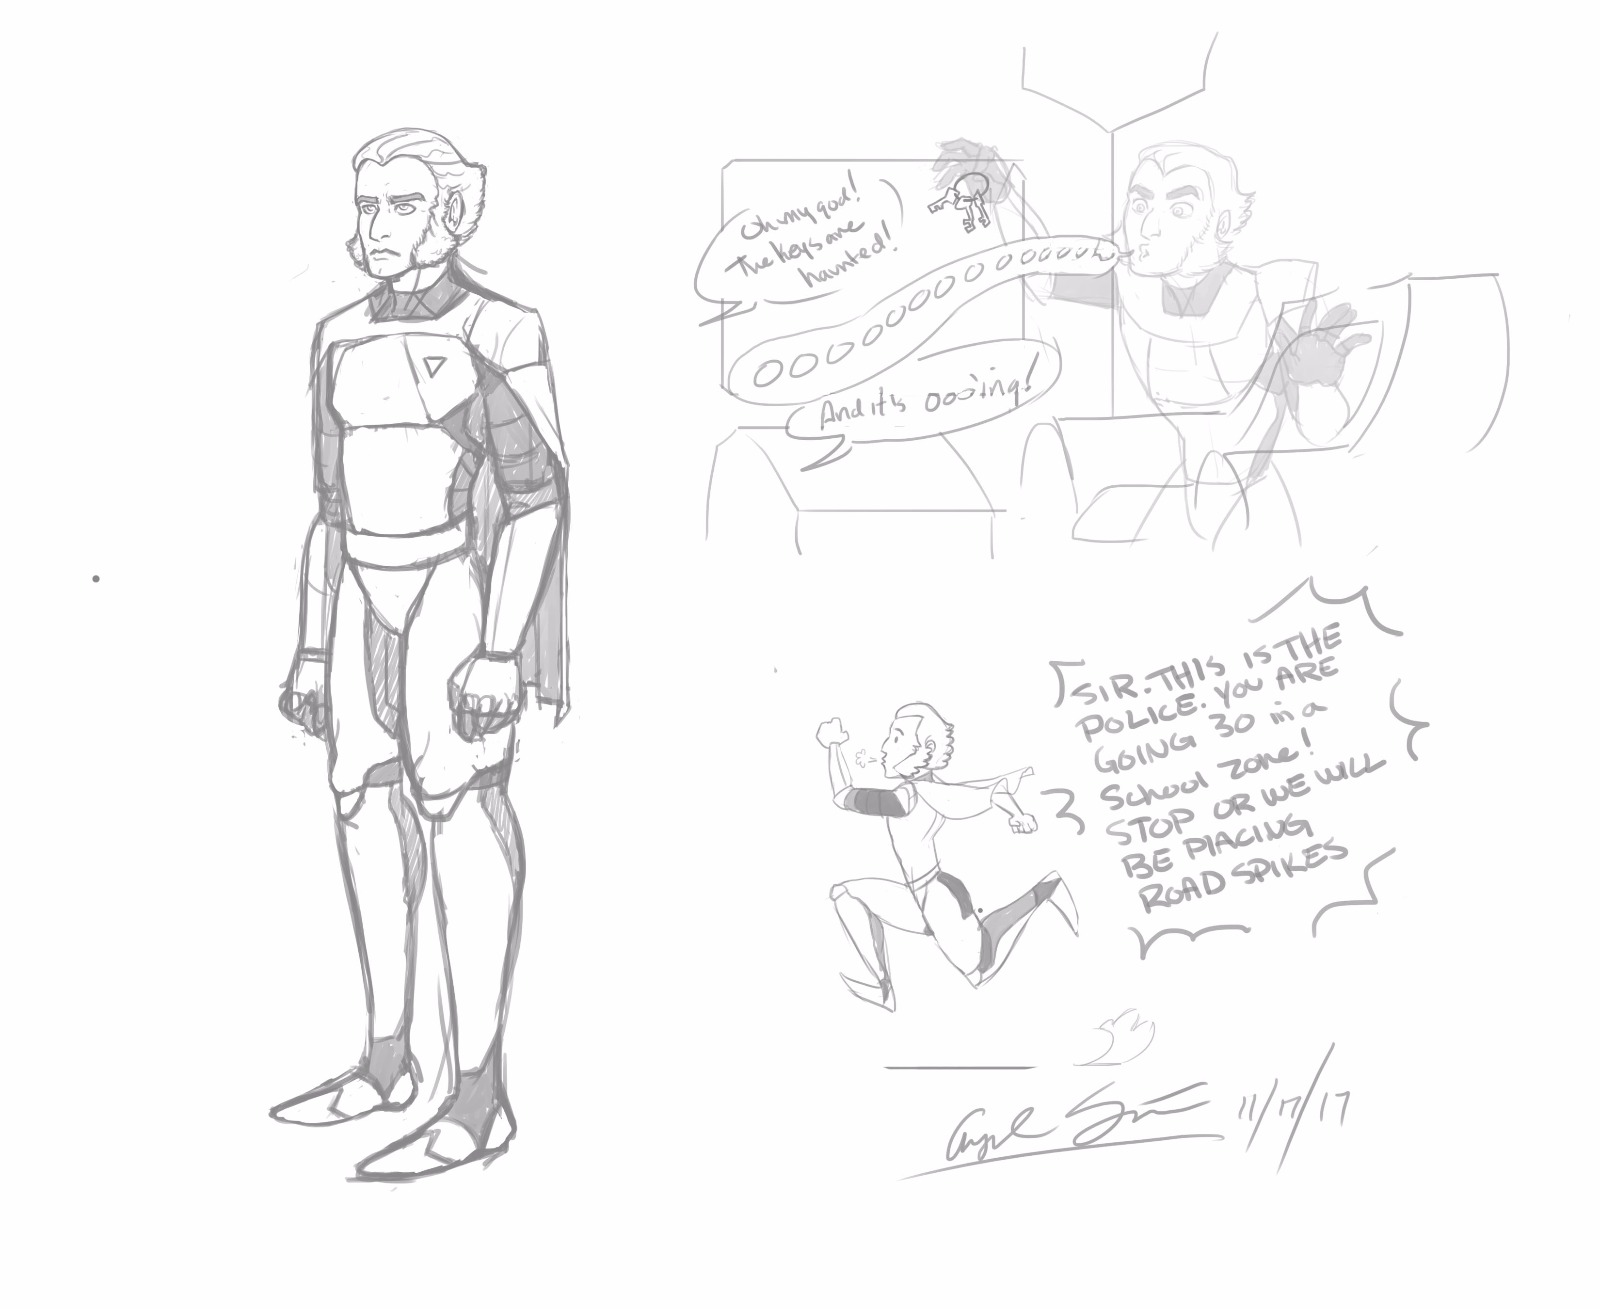 Oh my god!
The keys are
haunted!
OOOOOOOOOOOOOOOO
And it's ooo'ing!
SIR. THIS IS THE
POLICE. YOU ARE
GOING 30 in a
School zone!
STOP OR WE WILL
BE PlACING
ROAD SPIKES
11/17/17